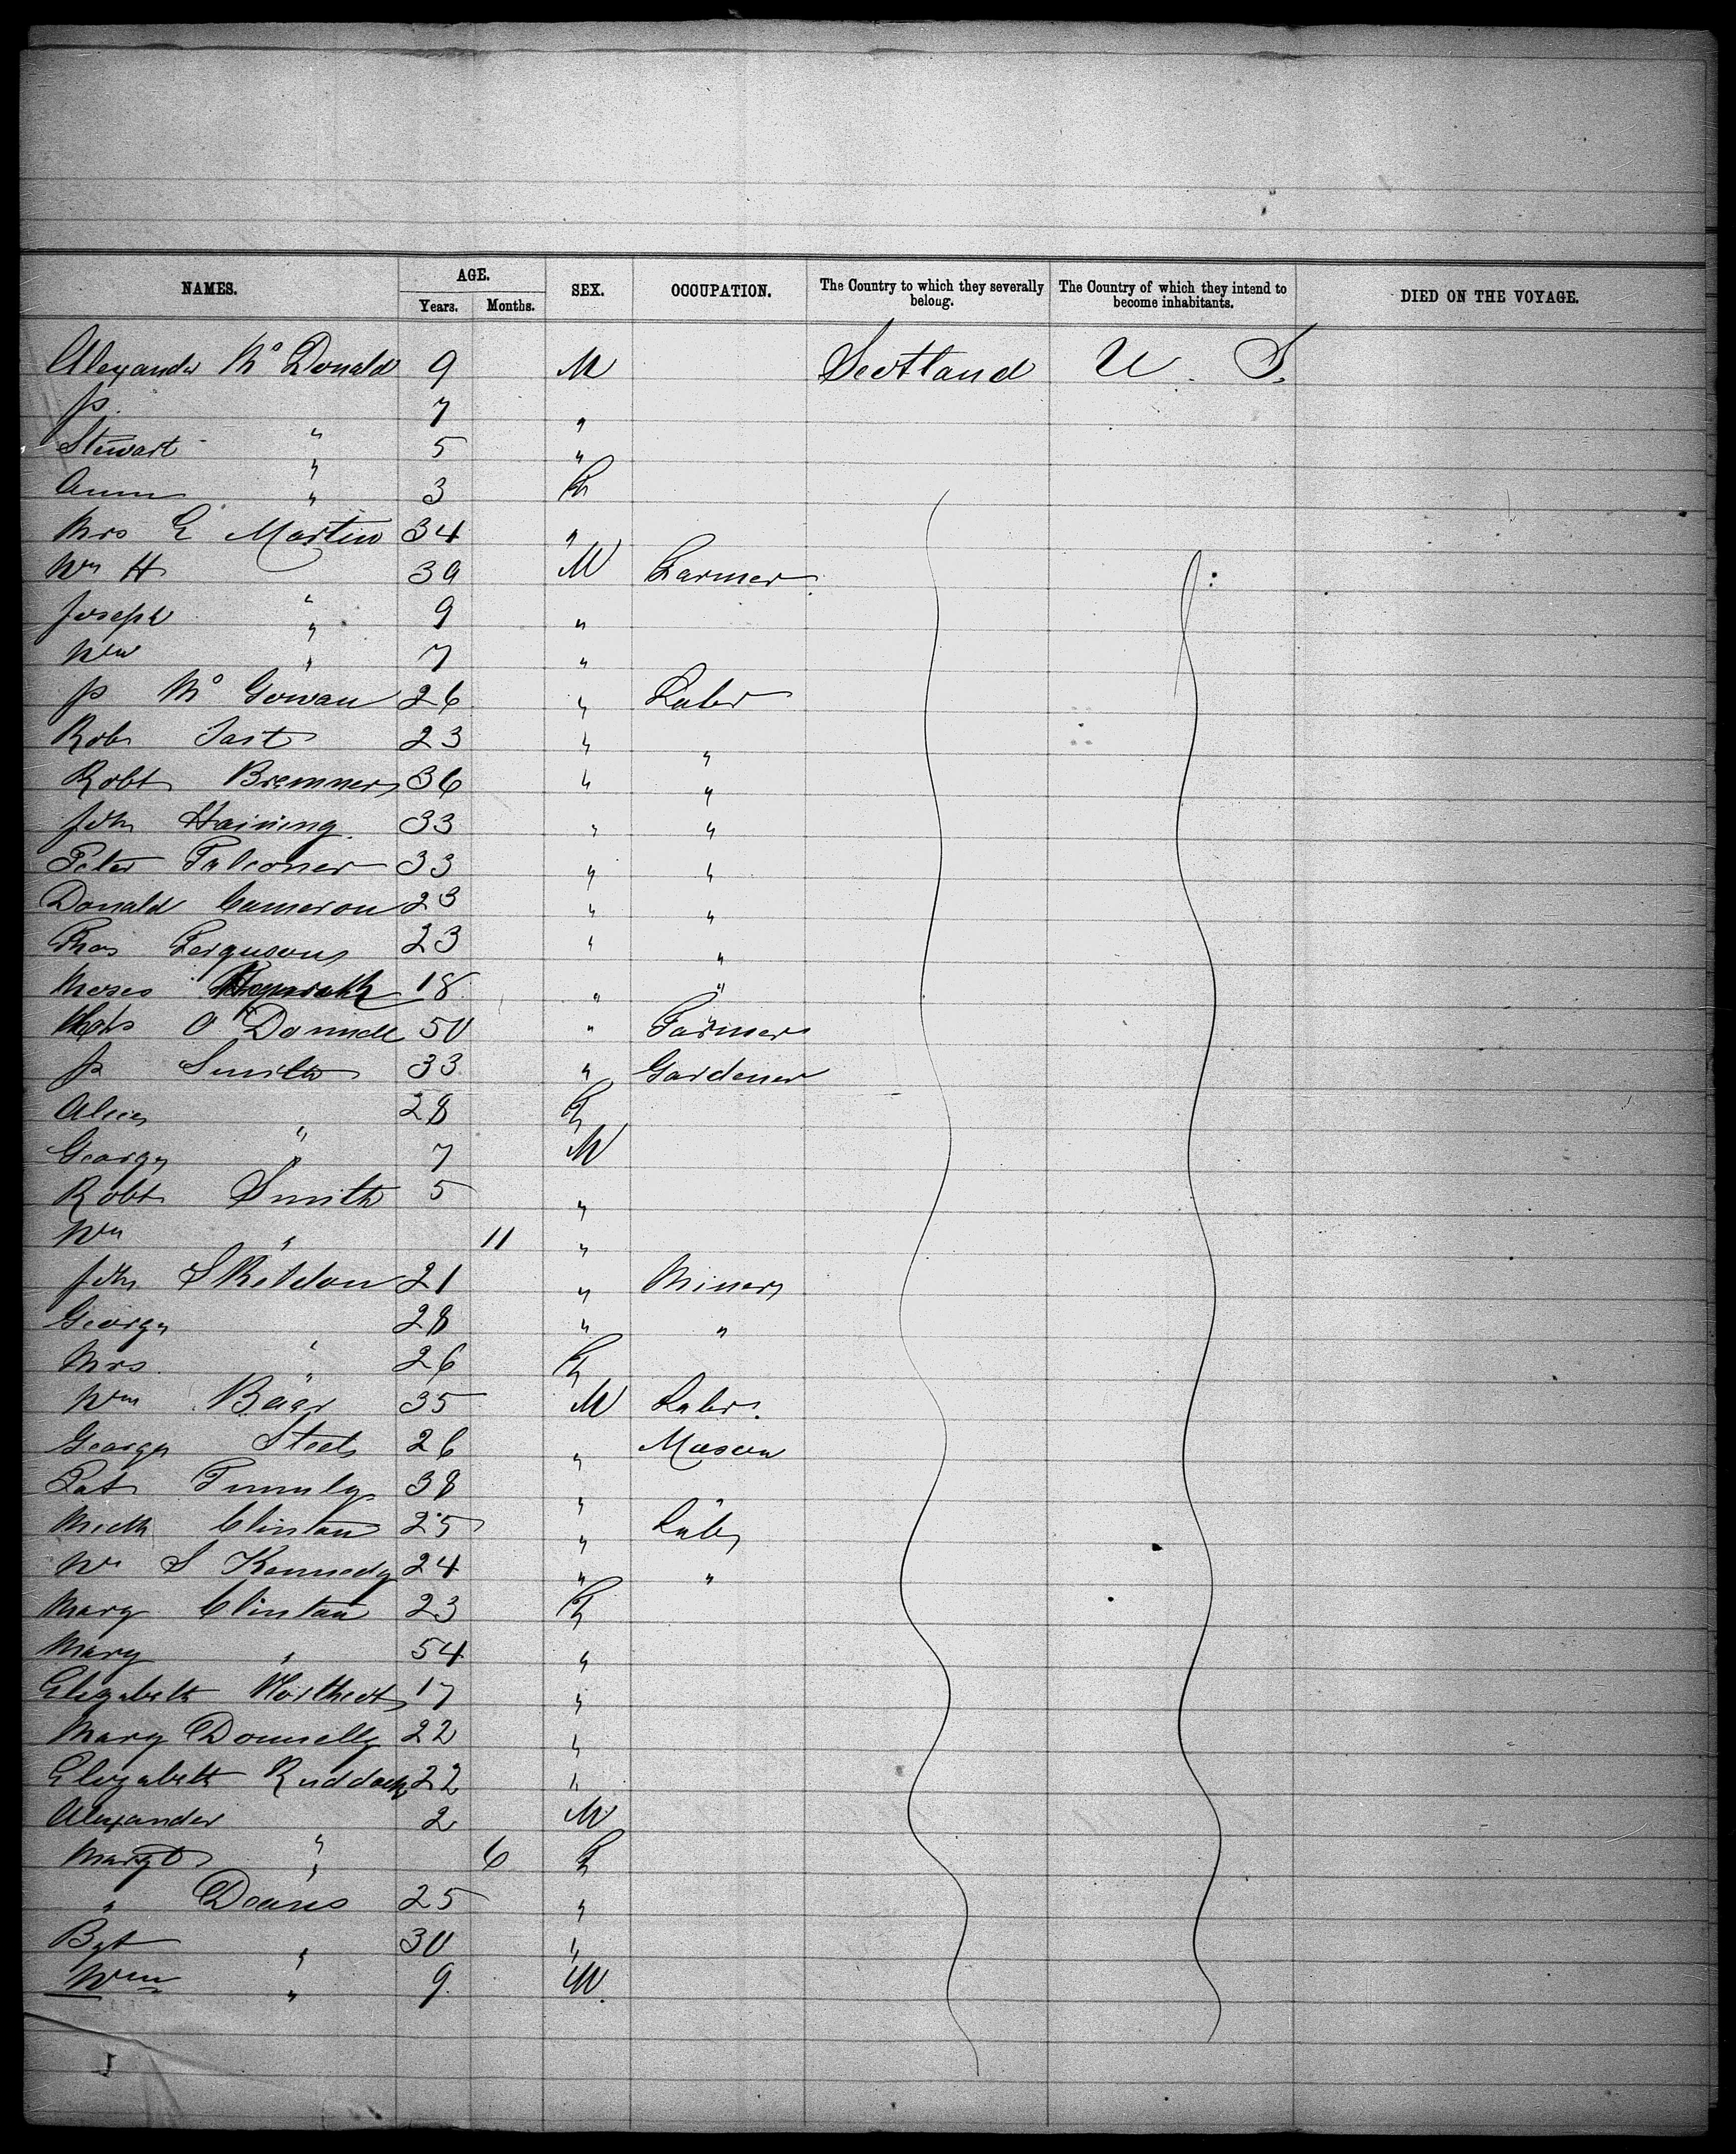 NAMES. AGE. Years. Months. SEX. OCCUPATION. The Country to which they severally belong. The Country of which they intend to become inhabitants. DIED ON THE VOYAGE.
Alexander Mc Donald 9 M Scotland U. S.
Js. " 7 "
Stewart " 5 "
Ann " 3 F
Mrs E Martin 34 "
Wm H " 39 M Farmer
Joseph " 9 "
Wm " 7 "
Js Mc Gowan 26 " Labr
Robt 23 " "
Robt Bremner 36 " "
John Haining 33 " "
Peter Falconer 33 " "
Donald Cameron 23 " "
Thos Ferguson 23 " "
Moses 18 " "
O'Donnell 50 " Farmer
Js Smith 33 " Gardener
Alice " 28 F
George " 7 M
Robt Smith 5 "
Wm " 11 "
John Skeldon 21 " Miner
George " 28 " "
Mrs. " 26 F
Wm 35 M Labr.
George Steel 26 " Mason
Pat 38 " "
Mich Clinton 25 " Labr
Wm S Kennedy 24 " "
Mary Clinton 23 F
Mary " 54 "
Elizabeth 17 "
Mary Donnelly 22 "
Elizabeth Ruddock 22 "
Alexander " 2 M
Margt " 6 F
" Deans 25 "
Bgt " 30 "
Wm " 9. M.